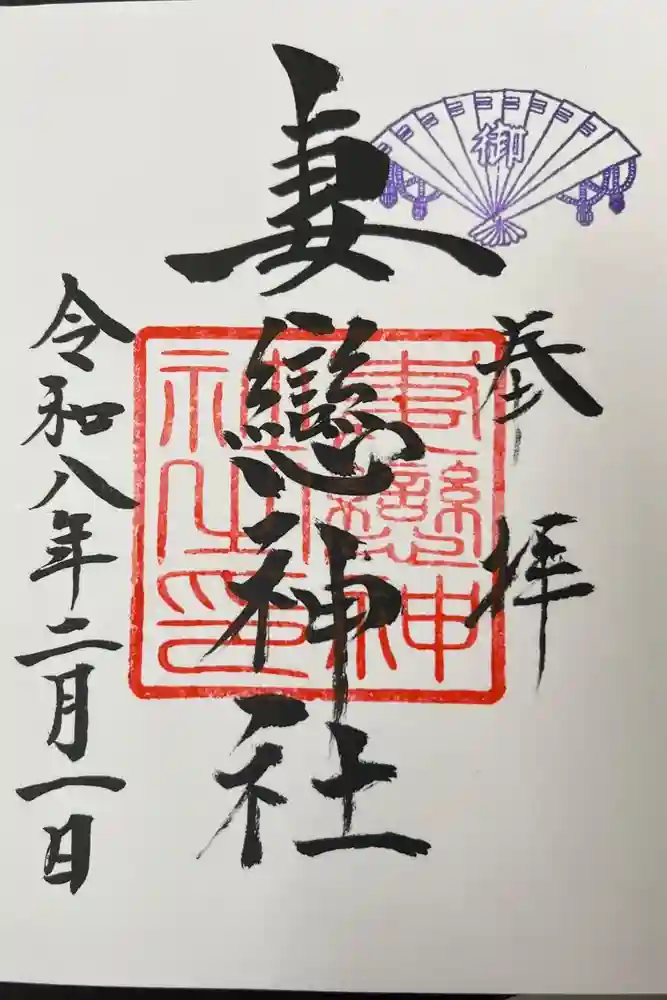 御
奉拝
妻戀神社
妻戀神社之印
令和八年二月一日